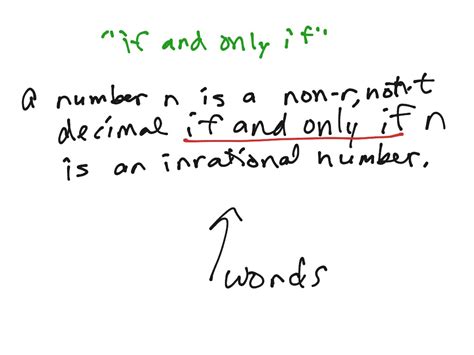 "if and only if"
a number n is a non-r, not-t
decimal if and only if n
is an irrational number.
words